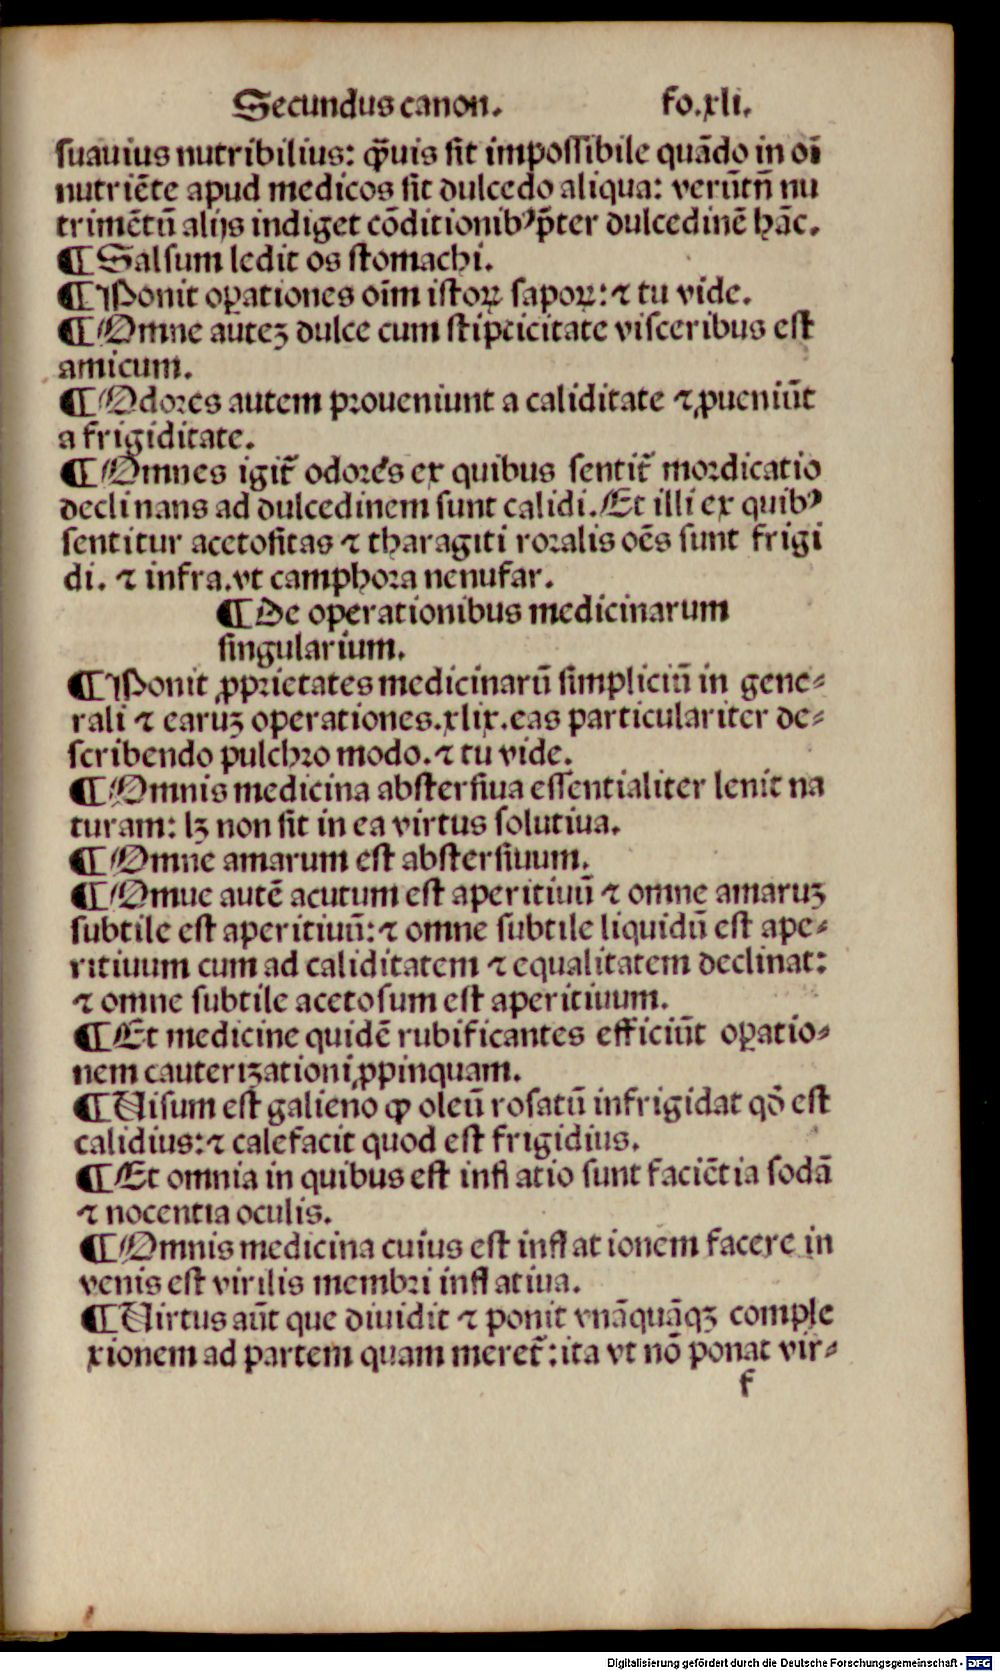 Secundus canon. fo.xli.
suauius nutribilius: ꝙ̃uis sit impossibile quãdo in oĩ
nutriẽte apud medicos sit dulcedo aliqua: verũtñ nu
trimẽtũ alijs indiget cõditionibꝰ p̃ter dulcedinẽ hãc.
¶ Salsum ledit os stomachi.
¶ Ponit oꝑationes oĩm istoꝝ sapoꝝ: ⁊ tu vide.
¶ Omne auteʒ dulce cum stipticitate visceribus est
amicum.
¶ Odores autem proueniunt a caliditate ⁊ ꝓueniũt
a frigiditate.
¶ Omnes igit̃ odores ex quibus sentit̃ mordicatio
declinans ad dulcedinem sunt calidi. Et illi ex quibꝰ
sentitur acetositas ⁊ tharagiti roralis oẽs sunt frigi
di. ⁊ infra. vt camphora nenufar.
¶ De operationibus medicinarum
singularium.
¶ Ponit ꝓprietates medicinarũ simpliciũ in gene-
rali ⁊ earuʒ operationes .xlix. eas particulariter de-
scribendo pulchro modo. ⁊ tu vide.
¶ Omnis medicina abstersiua essentialiter lenit na
turam: lʒ non sit in ea virtus solutiua.
¶ Omne amarum est abstersiuum.
¶ Omue autẽ acutum est aperitiuũ ⁊ omne amaruʒ
subtile est aperitiuũ: ⁊ omne subtile liquidũ est ape-
ritiuum cum ad caliditatem ⁊ equalitatem declinat:
⁊ omne subtile acetosum est aperitiuum.
¶ Et medicine quidẽ rubificantes efficiũt oꝑatio-
nem cauterizationi ꝓpinquam.
¶ Uisum est galieno ꝙ oleũ rosatũ infrigidat qđ est
calidius: ⁊ calefacit quod est frigidius.
¶ Et omnia in quibus est inflatio sunt faciẽtia sodã
⁊ nocentia oculis.
¶ Omnis medicina cuius est inflationem facere in
venis est virilis membri inflatiua.
¶ Uirtus aũt que diuidit ⁊ ponit vnãquãqʒ comple
xionem ad partem quam meret̃: ita vt nõ ponat vir-
f
Digitalisierung gefördert durch die Deutsche Forschungsgemeinschaft - DFG